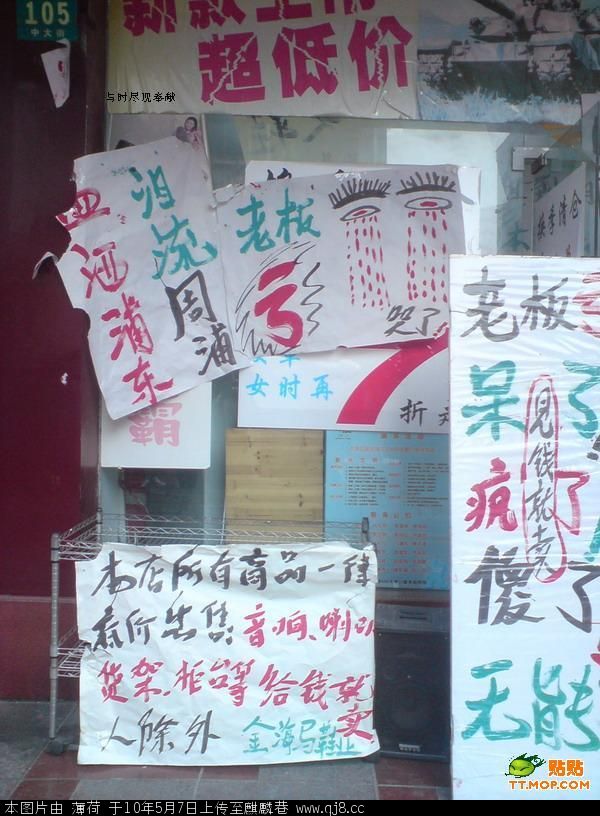 105
中大街
新款上市
超低价
换季清仓
泪流周浦
血洒浦东
老板
亏
哭了
女时再
折
霸
老板
呆了
疯了
傻了
无能
见钱就卖
本店所有商品一律
疯价出售,音响、喇叭
货架、柜台等给钱就卖
人除外 金海马鞋业
贴贴
TT.MOP.COM
本图片由 薄荷 于10年5月7日上传至麒麟巷 www.qj8.cc